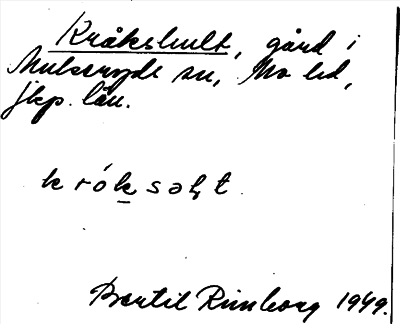 Kråkshult, gård i
Mulseryds sn, Mo hd,
Jkp. län.
k r ó k s ə ł t.
Bertil Rimborg 1949.